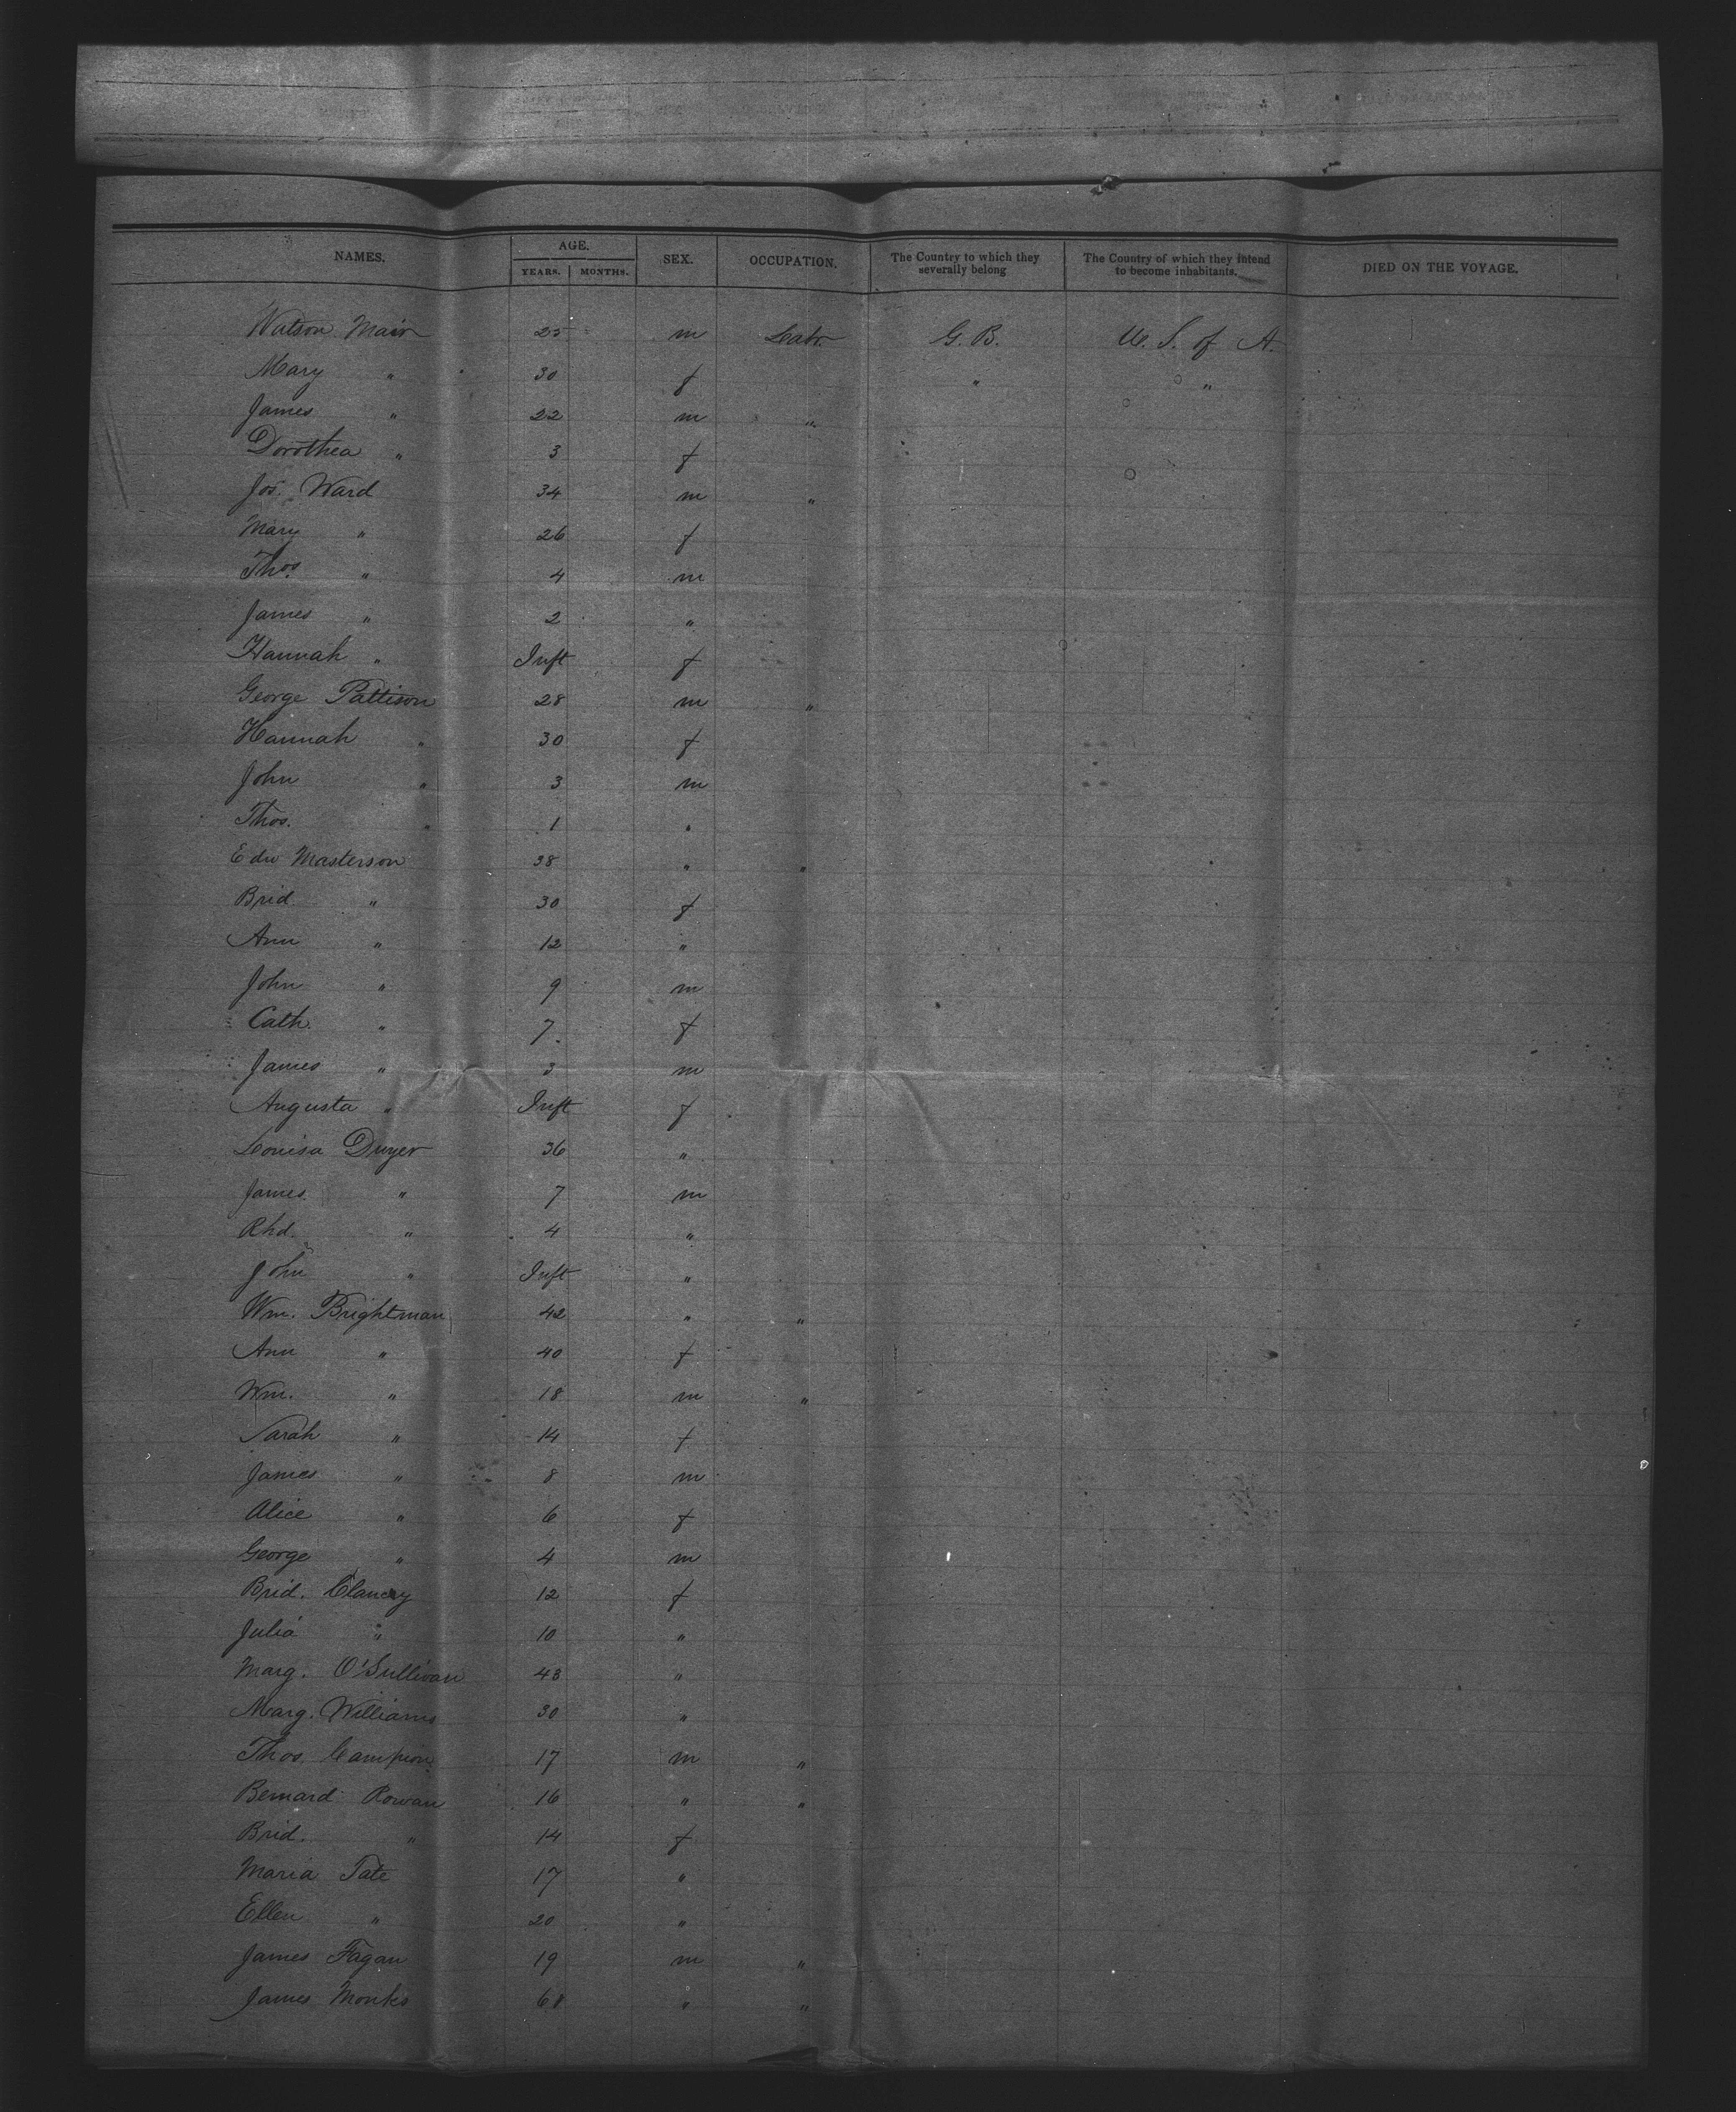 NAMES. AGE. YEARS. MONTHS. SEX. OCCUPATION. The Country to which they severally belong The Country of which they intend to become inhabitants. DIED ON THE VOYAGE.
Watson Mair 25 m Labr. G. B. U. S. of A.
Mary " 30 f " "
James " 22 m "
Dorothea " 3 f
Jos. Ward 34 m "
Mary " 26 f
Thos. " 4 m
James " 2 "
Hannah " Inft f
George Pattison 28 m "
Hannah " 30 f
John " 3 m
Thos. " 1 "
Edw Masterson 38 " "
Brid. " 30 f
Ann " 12 "
John " 9 m
Cath. " 7 f
James " 3 m
Augusta " Inft f
Louisa Dwyer 36 "
James " 7 m
Rhd. " 4 "
John " Inft "
Wm. Brightman 42 " "
Ann " 40 f
Wm. " 18 m "
Sarah " 14 f
James " 8 m
Alice " 6 f
George " 4 m
Brid. Clancy 12 f
Julia " 10 "
Marg. O'Sullivan 48 "
Marg. Williams 30 "
Thos. Campion 17 m "
Bernard Rowan 16 " "
Brid. " 14 f
Maria Tate 17 "
Ellen " 20 "
James Fagan 19 m "
James Monks 68 " "